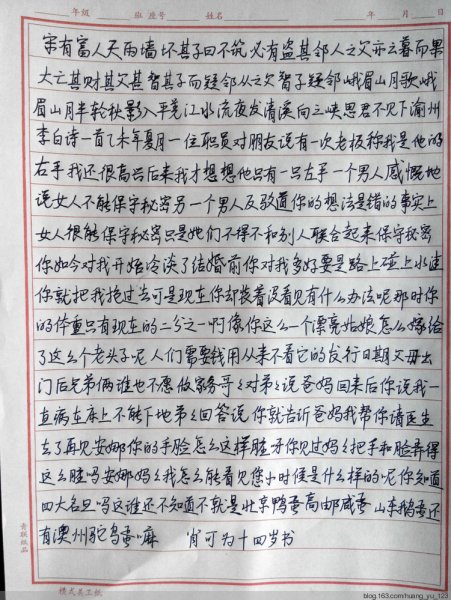 年级 班 座号 姓名 年 月 日
宋有富人天雨墙坏其子曰不筑必有盗其邻人之父亦云暮而果
大亡其财其家甚智其子而疑邻人之父智子疑邻峨眉山月歌峨
眉山月半轮秋影入平羌江水流夜发清溪向三峡思君不见下渝州
李白诗一首乙未年夏月一位职员对朋友说有一次老板称我是他的
右手我还很高兴后来我才想想他只有一只左手一个男人感慨地
说女人不能保守秘密另一个男人反驳道你的想法是错的事实上
女人很能保守秘密只是她们不得不和别人联合起来保守秘密
你如今对我开始冷淡了结婚前你对我多好要是路上碰上水洼
你就把我抱过去可是现在你却装着没看见有什么办法呢那时你
的体重只有现在的二分之一啊像你这么一个漂亮姑娘怎么嫁给
了这么个老头子呢人们需要钱用从来不看它的发行日期父母出
门后兄弟俩谁也不愿做家务哥々对弟々说爸妈回来后你说我一
直病在床上不能下地弟々回答说你就告诉爸妈我帮你请医生
去了再见安娜你的手脸怎么这样脏牙你见过妈々把手和脸弄得
这么脏吗安娜妈々我怎么能看见您小时候是什么样的呢你知道
四大名旦吗这谁还不知道不就是北京鸭蛋高邮咸蛋山东鹅蛋还
有澳州鸵鸟蛋嘛 肖可为十四岁书
青联纸品
模式员工纸
blog.163.com/huang_yu_123